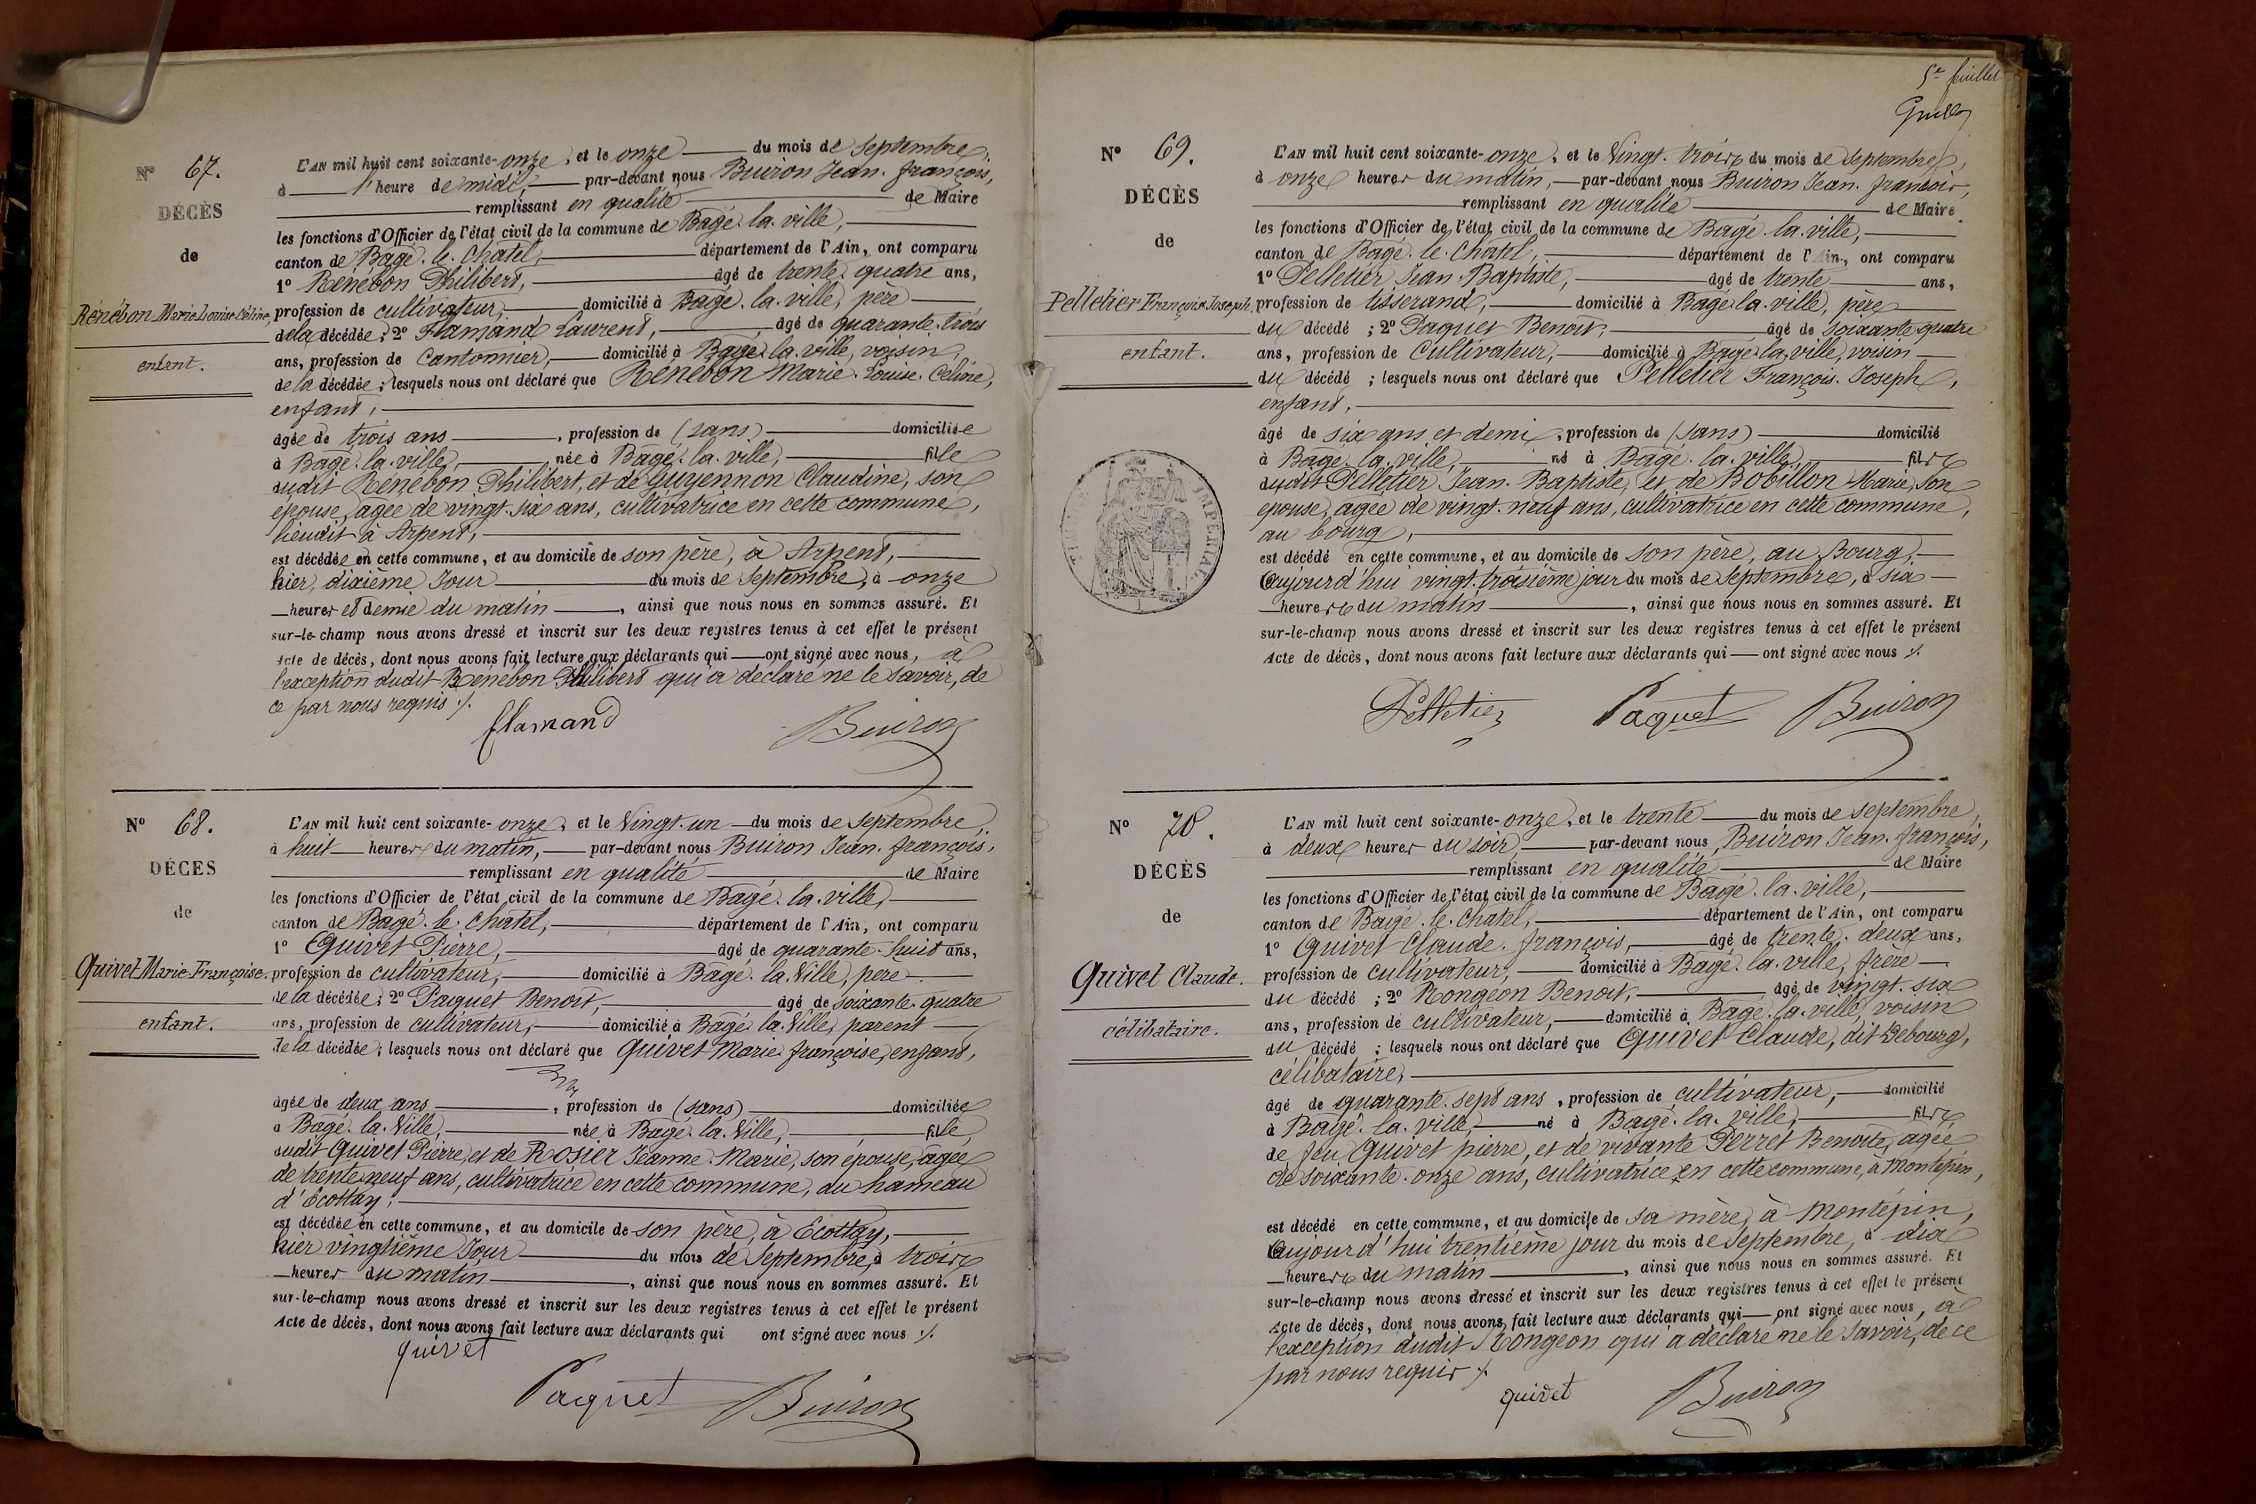 Nº 67.
DÉCÈS
de
Rénébon Marie Louise Céline,
enfant.
L'AN mil huit cent soixante-onze, et le onze du mois de Septembre,
à l'heure de midi, par-devant nous Buiron Jean. françois,
remplissant en qualité de Maire
les fonctions d'Officier de l'état civil de la commune de Bagé. la. ville,
canton de Bagé. le. Chatel, département de l'Ain, ont comparu
1º Rénébon Philibert, âgé de trente. quatre ans,
profession de cultivateur, domicilié à Bagé. la. ville, père
de la décédée; 2º Flamand Laurent, âgé de quarante. trois
ans, profession de Cantonnier, domicilié à Bagé. la. ville, voisin
de la décédée; lesquels nous ont déclaré que Rénébon Marie. Louise. Céline,
enfant,
âgée de trois ans, profession de (sans) domiciliée
à Bagé. la. ville, née à Bagé. la. ville, fille
dudit Rénébon Philibert, et de Guyennon Claudine, son
épouse, agée de vingt. six ans, cultivatrice en cette commune,
lieudit à Arpent,
est décédée en cette commune, et au domicile de son père, à Arpent,
hier, dixième Jour du mois de Septembre, à onze
heures et demie du matin, ainsi que nous nous en sommes assuré. Et
sur-le-champ nous avons dressé et inscrit sur les deux registres tenus à cet effet le présent
Acte de décès, dont nous avons fait lecture aux déclarants qui ont signé avec nous, à
l'exception dudit Rénébon Philibert qui a déclaré ne le savoir, de
ce par nous requis ./.
flamand Buiron
Nº 68.
DÉCÈS
de
Quivet Marie-Françoise.
enfant.
L'AN mil huit cent soixante-onze, et le Vingt. un du mois de Septembre,
à huit heures du matin, par-devant nous Buiron Jean. françois,
remplissant en qualité de Maire
les fonctions d'Officier de l'état civil de la commune de Bagé. la. ville,
canton de Bagé. le. Chatel, département de l'Ain, ont comparu
1º Quivet Pierre, âgé de quarante. huit ans,
profession de cultivateur, domicilié à Bagé. la. Ville, père
de la décédée; 2º Paquet Benoit, âgé de soixante. quatre
ans, profession de cultivateur, domicilié à Bagé. la. Ville, parent
de la décédée; lesquels nous ont déclaré que Quivet Marie. françoise, enfant,
âgée de deux ans, profession de (sans) domiciliée
à Bagé. la. Ville, née à Bagé. la. Ville, fille
dudit Quivet Pierre, et de Rosier Jeanne. Marie, son épouse, agée
de trente. neuf ans, cultivatrice en cette commune, du hameau
d'Ecottay,
est décédée en cette commune, et au domicile de son père, à Ecottay,
hier vingtième Jour du mois de Septembre, à trois
heures du matin, ainsi que nous nous en sommes assuré. Et
sur-le-champ nous avons dressé et inscrit sur les deux registres tenus à cet effet le présent
Acte de décès, dont nous avons fait lecture aux déclarants qui ont signé avec nous ./.
quivet
Paquet Buiron
5e feuillet
Nº 69.
DÉCÈS
de
Pelletier François-Joseph,
enfant.
L'AN mil huit cent soixante-onze, et le Vingt. trois du mois de Septembre,
à onze heures du matin, par-devant nous Buiron Jean. francois,
remplissant en qualité de Maire
les fonctions d'Officier de l'état civil de la commune de Bagé. la. ville,
canton de Bagé. le. Chatel, département de l'Ain, ont comparu
1º Pelletier Jean. Baptiste, âgé de trente ans,
profession de tisserand, domicilié à Bagé. la. ville, père
du décédé; 2º Paquet Benoit, âgé de soixante. quatre
ans, profession de Cultivateur, domicilié à Bagé. la. ville, voisin
du décédé; lesquels nous ont déclaré que Pelletier François. Joseph,
enfant,
âgé de six ans et demi, profession de (sans) domicilié
à Bagé. la. ville, né à Bagé. la. ville, fils
dudit Pelletier Jean. Baptiste, et de Bobillon Marie, son
épouse, agée de vingt. neuf ans, cultivatrice en cette commune,
au bourg,
est décédé en cette commune, et au domicile de son père, au Bourg,
Aujourd'hui vingt. troisième jour du mois de Septembre, à six
heures du matin, ainsi que nous nous en sommes assuré. Et
sur-le-champ nous avons dressé et inscrit sur les deux registres tenus à cet effet le présent
Acte de décès, dont nous avons fait lecture aux déclarants qui ont signé avec nous ./.
Pelletier Paquet Buiron
TIMBRE IMPÉRIAL
Nº 70.
DÉCÈS
de
Quivet Claude.
célibataire.
L'AN mil huit cent soixante-onze, et le trente du mois de Septembre,
à deux heures du soir, par-devant nous Buiron Jean. françois,
remplissant en qualité de Maire
les fonctions d'Officier de l'état civil de la commune de Bagé. la. ville,
canton de Bagé. le. Chatel, département de l'Ain, ont comparu
1º Quivet Claude. françois, âgé de trente. deux ans,
profession de cultivateur, domicilié à Bagé. la. ville, frère
du décédé; 2º Rongeon Benoit, âgé de vingt. six
ans, profession de cultivateur, domicilié à Bagé. la. ville, voisin
du décédé; lesquels nous ont déclaré que Quivet Claude, dit Debourg,
célibataire,
âgé de quarante. sept ans, profession de cultivateur, domicilié
à Bagé. la. ville, né à Bagé. la. ville, fils
de feu Quivet pierre, et de vivante Perret Benoite, agée
de soixante. onze ans, cultivatrice en cette commune, à Montépin,
est décédé en cette commune, et au domicile de sa mère, à Montépin,
Aujourd'hui trentième jour du mois de Septembre, à dix
heures du matin, ainsi que nous nous en sommes assuré. Et
sur-le-champ nous avons dressé et inscrit sur les deux registres tenus à cet effet le présent
Acte de décès, dont nous avons fait lecture aux déclarants qui ont signé avec nous, à
l'exception dudit Rongeon qui a déclaré ne le savoir, de ce
par nous requis ./.
quivet Buiron